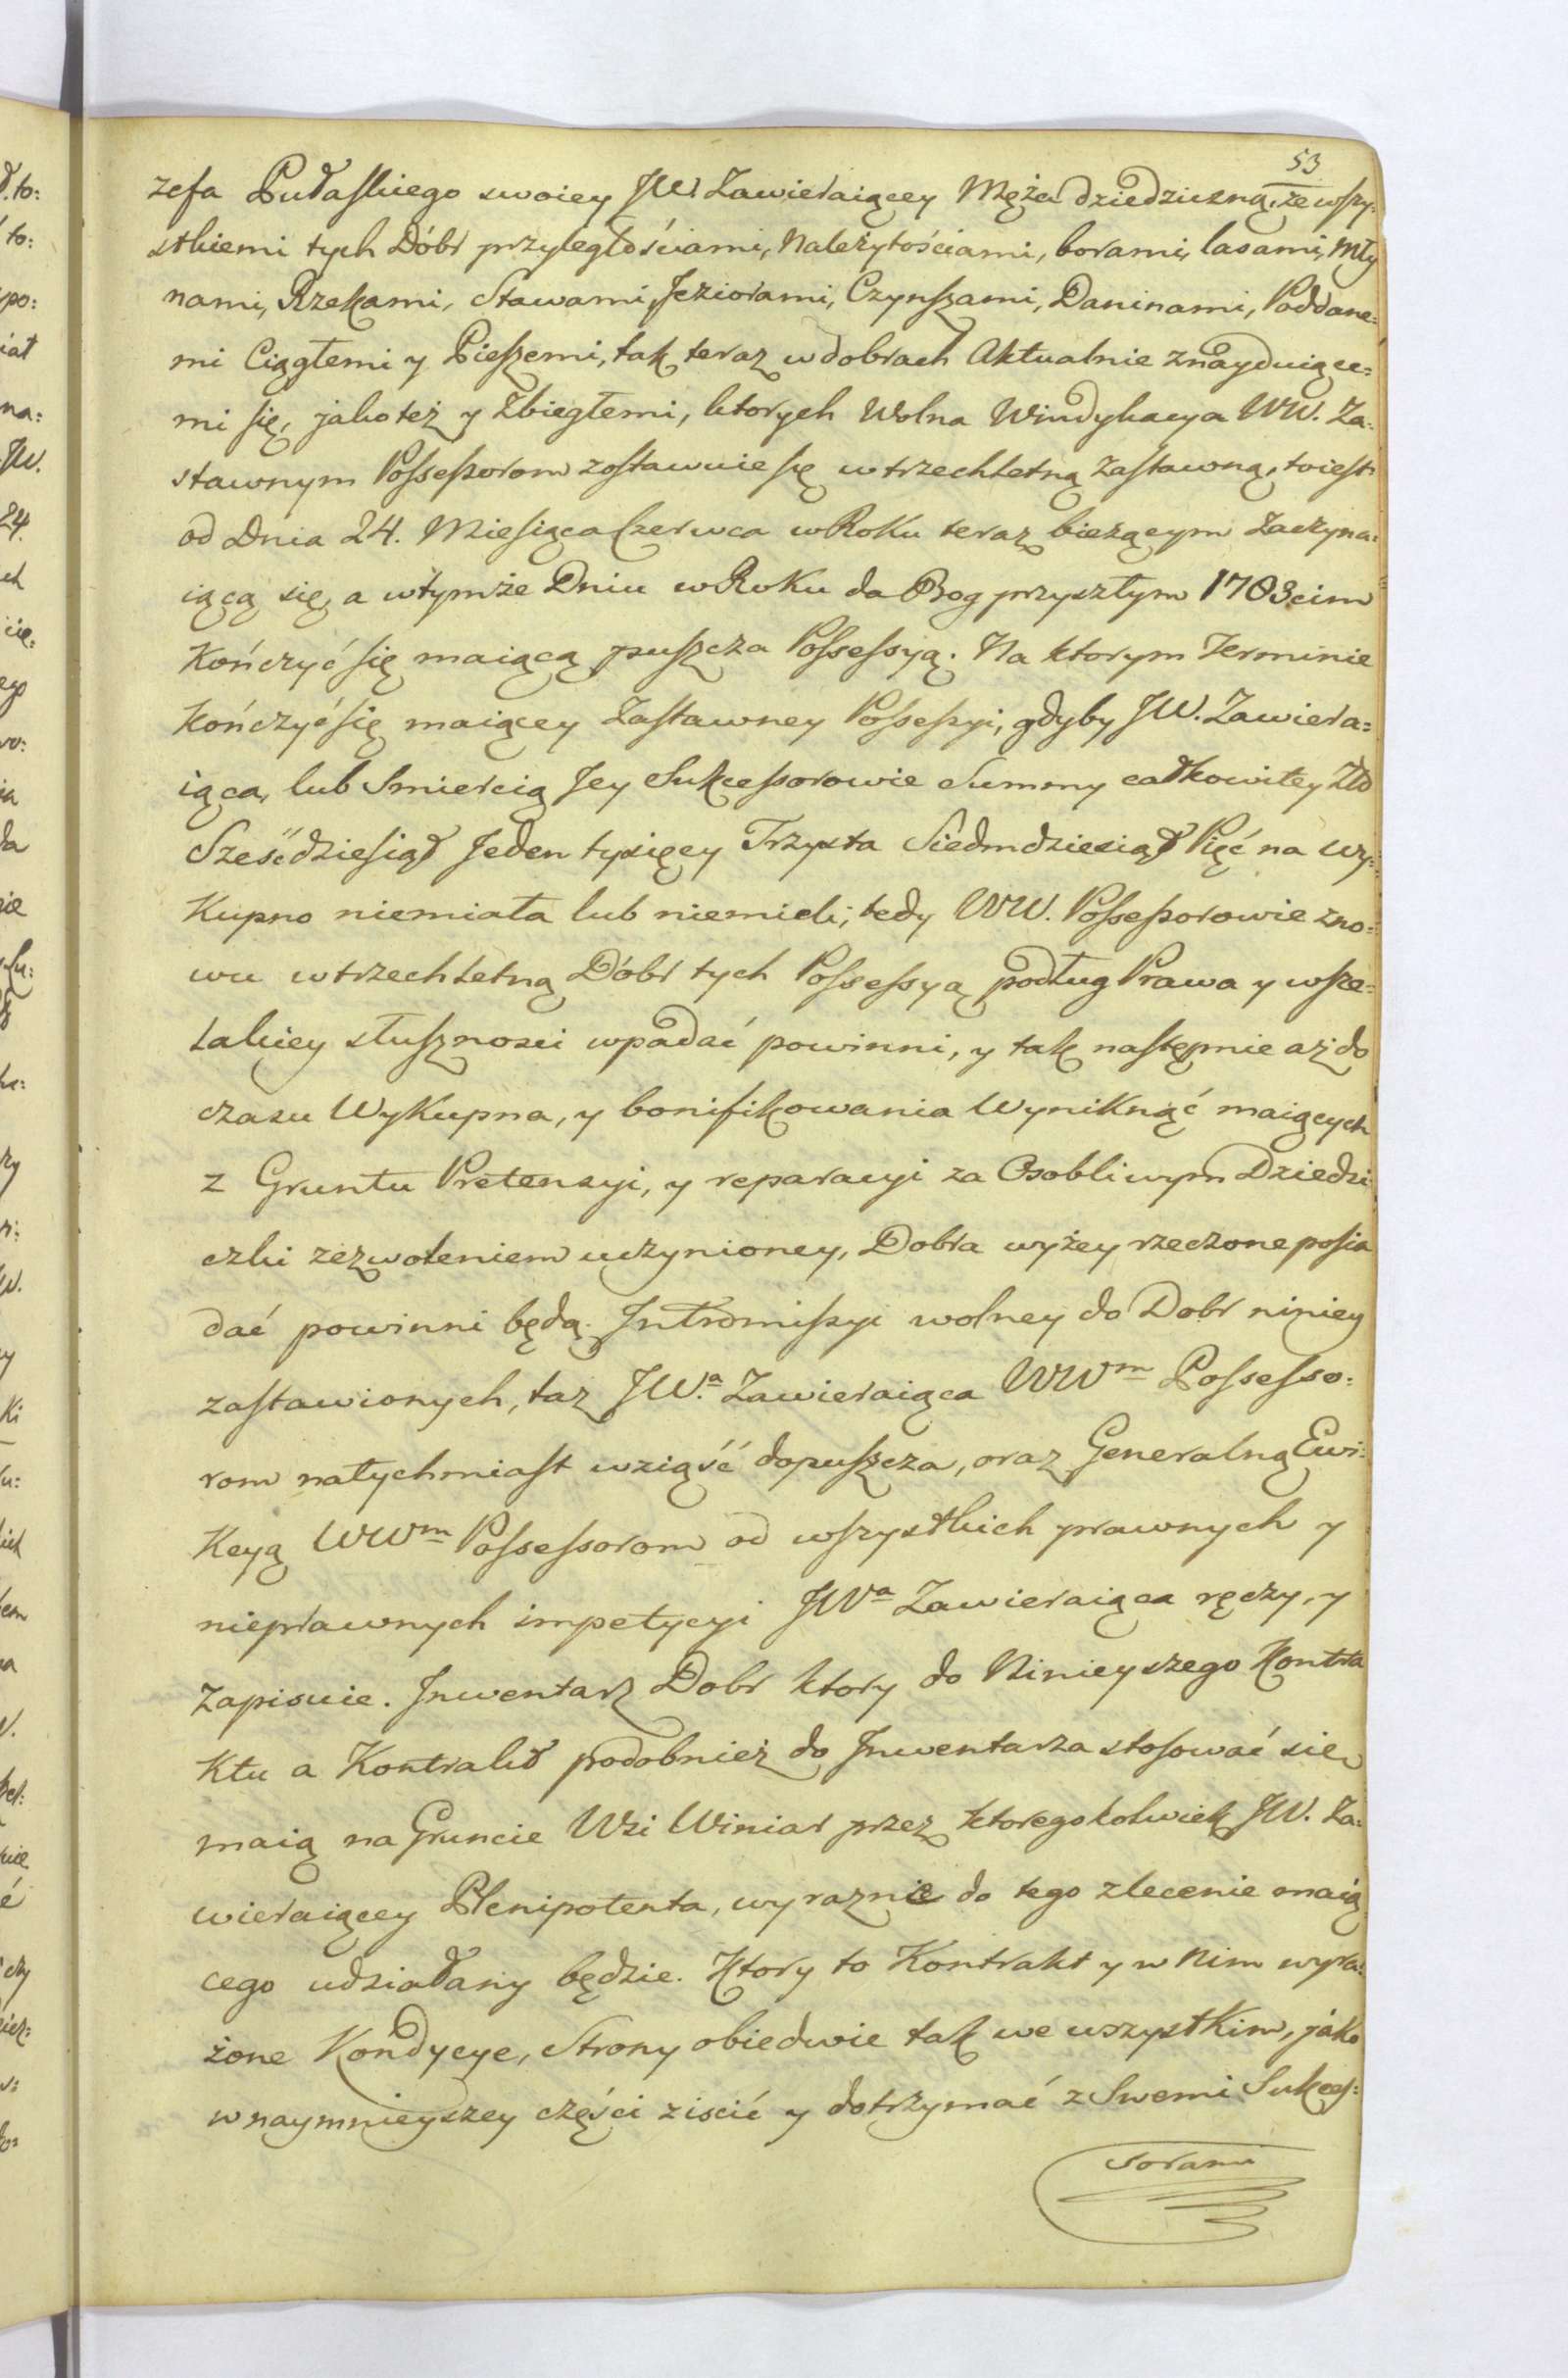 53
zefa Pułaskiego swoiey JW. Zawieraiącey Męża dziedziczną, ze wszy=
stkiemi tych Dóbr przyległościami, Należytościami, borami, lasami, Mły
nami, Rzekami, Stawami, Jeziorami, Czynszami, Daninami, Poddane=
mi Ciągłemi y Pieszemi, tak teraz w dobrach Aktualnie znayduiące=
mi się, jako też y Zbiegłemi, ktorych Wolna Windykacya WW. Za=
stawnym Possessorom zostawuie się w trzechletną Zastawną, to iest
od Dnia 24. Miesiąca Czerwca w Roku teraz bieżącym Zaczyna=
iącą się, a w tymże Dniu w Roku da Bog przyszłym 1783cim
Kończyć się maiącą puszcza Possessyą. Na ktorym Terminie
Kończyć się maiącey Zastawney Possessyi, gdyby JW. Zawiera=
iąca, lub Smiercią Jey Sukcessorowie Summy całkowitey Złł
Sześćdziesiąt Jeden tysięcy Trzysta Siedmdziesiąt Pięć na wy=
Kupno niemiała lub niemieli, tedy WW. Possessorowie zno=
wu w trzechletną Dóbr tych Possessyą podług Prawa y wsze=
lakiey słusznosci wpadać powinni, y tak następnie aż do
czasu Wykupna, y bonifikowania Wyniknąć maiących
z Gruntu Pretensyi, y reparacyi za Osobliwym Dziedzi
czki zezwoleniem uczynioney, Dobra wyżey rzeczone posia
dać powinni będą. Intromissyi wolney do Dobr niniey
zastawionych, taż JW.a Zawieraiąca WWm Possesso=
rom natychmiast wziąść dopuszcza, oraz Generalną Ewi=
Kcyą WWm Possessorom od wszystkich prawnych y
nieprawnych impetycyi JWa Zawieraiąca ręczy, y
Zapisuie. Inwentarz Dobr ktory do Ninieyszego Kontra
Ktu a Kontrakt podobnież do Inwentarza stosować sie
maią na Gruncie Wsi Winiar przez ktoregokolwiek JW. Za=
wieraiącey Plenipotenta, wyraznie do tego zlecenie maią
cego udziałany będzie. Ktory to Kontrakt y w Nim wyra=
żone Kondycye, Strony obiedwie tak we wszystkim, jako
w naymnieyszey części ziscić y dotrzymać z Swemi Sukces=
sorami